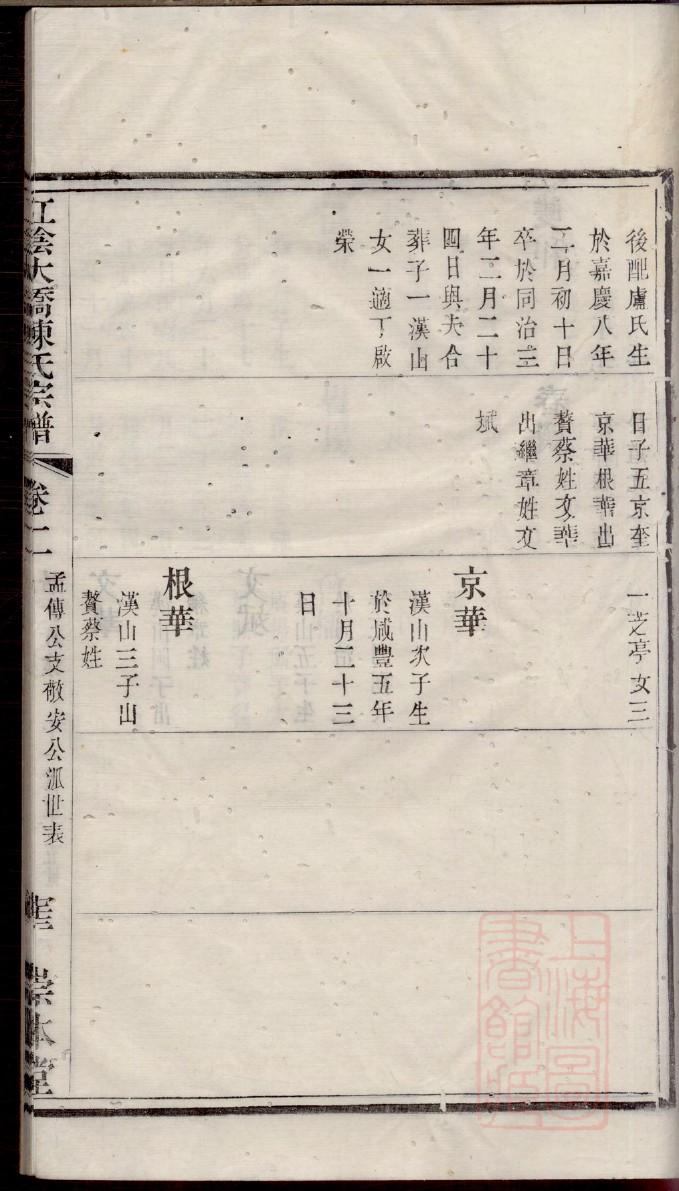 後配盧氏生
於嘉慶八年
二月初十日
卒於同治三
年二月二十
四日與夫合
葬子一漢山
女一適丁啟
榮
日子五京奎
京華根華出
贅蔡姓文華
出繼章姓文
斌
一芝亭女三
京華
漢山次子生
於咸豐五年
十月二十三
日
根華
漢山三子出
贅蔡姓
江陰大橋陳氏宗譜
卷二
孟傳公支敬安公派世表
崇本堂
上海圖書館藏